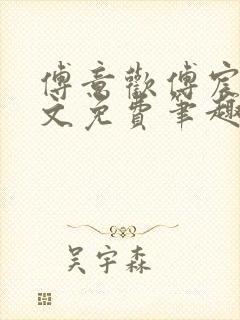 傅意歡傅宸
文免費筆趣
吴宇森